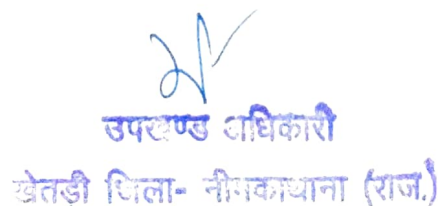 उपखण्ड अधिकारी
खेतडी जिला- नीमकाथाना (राज.)